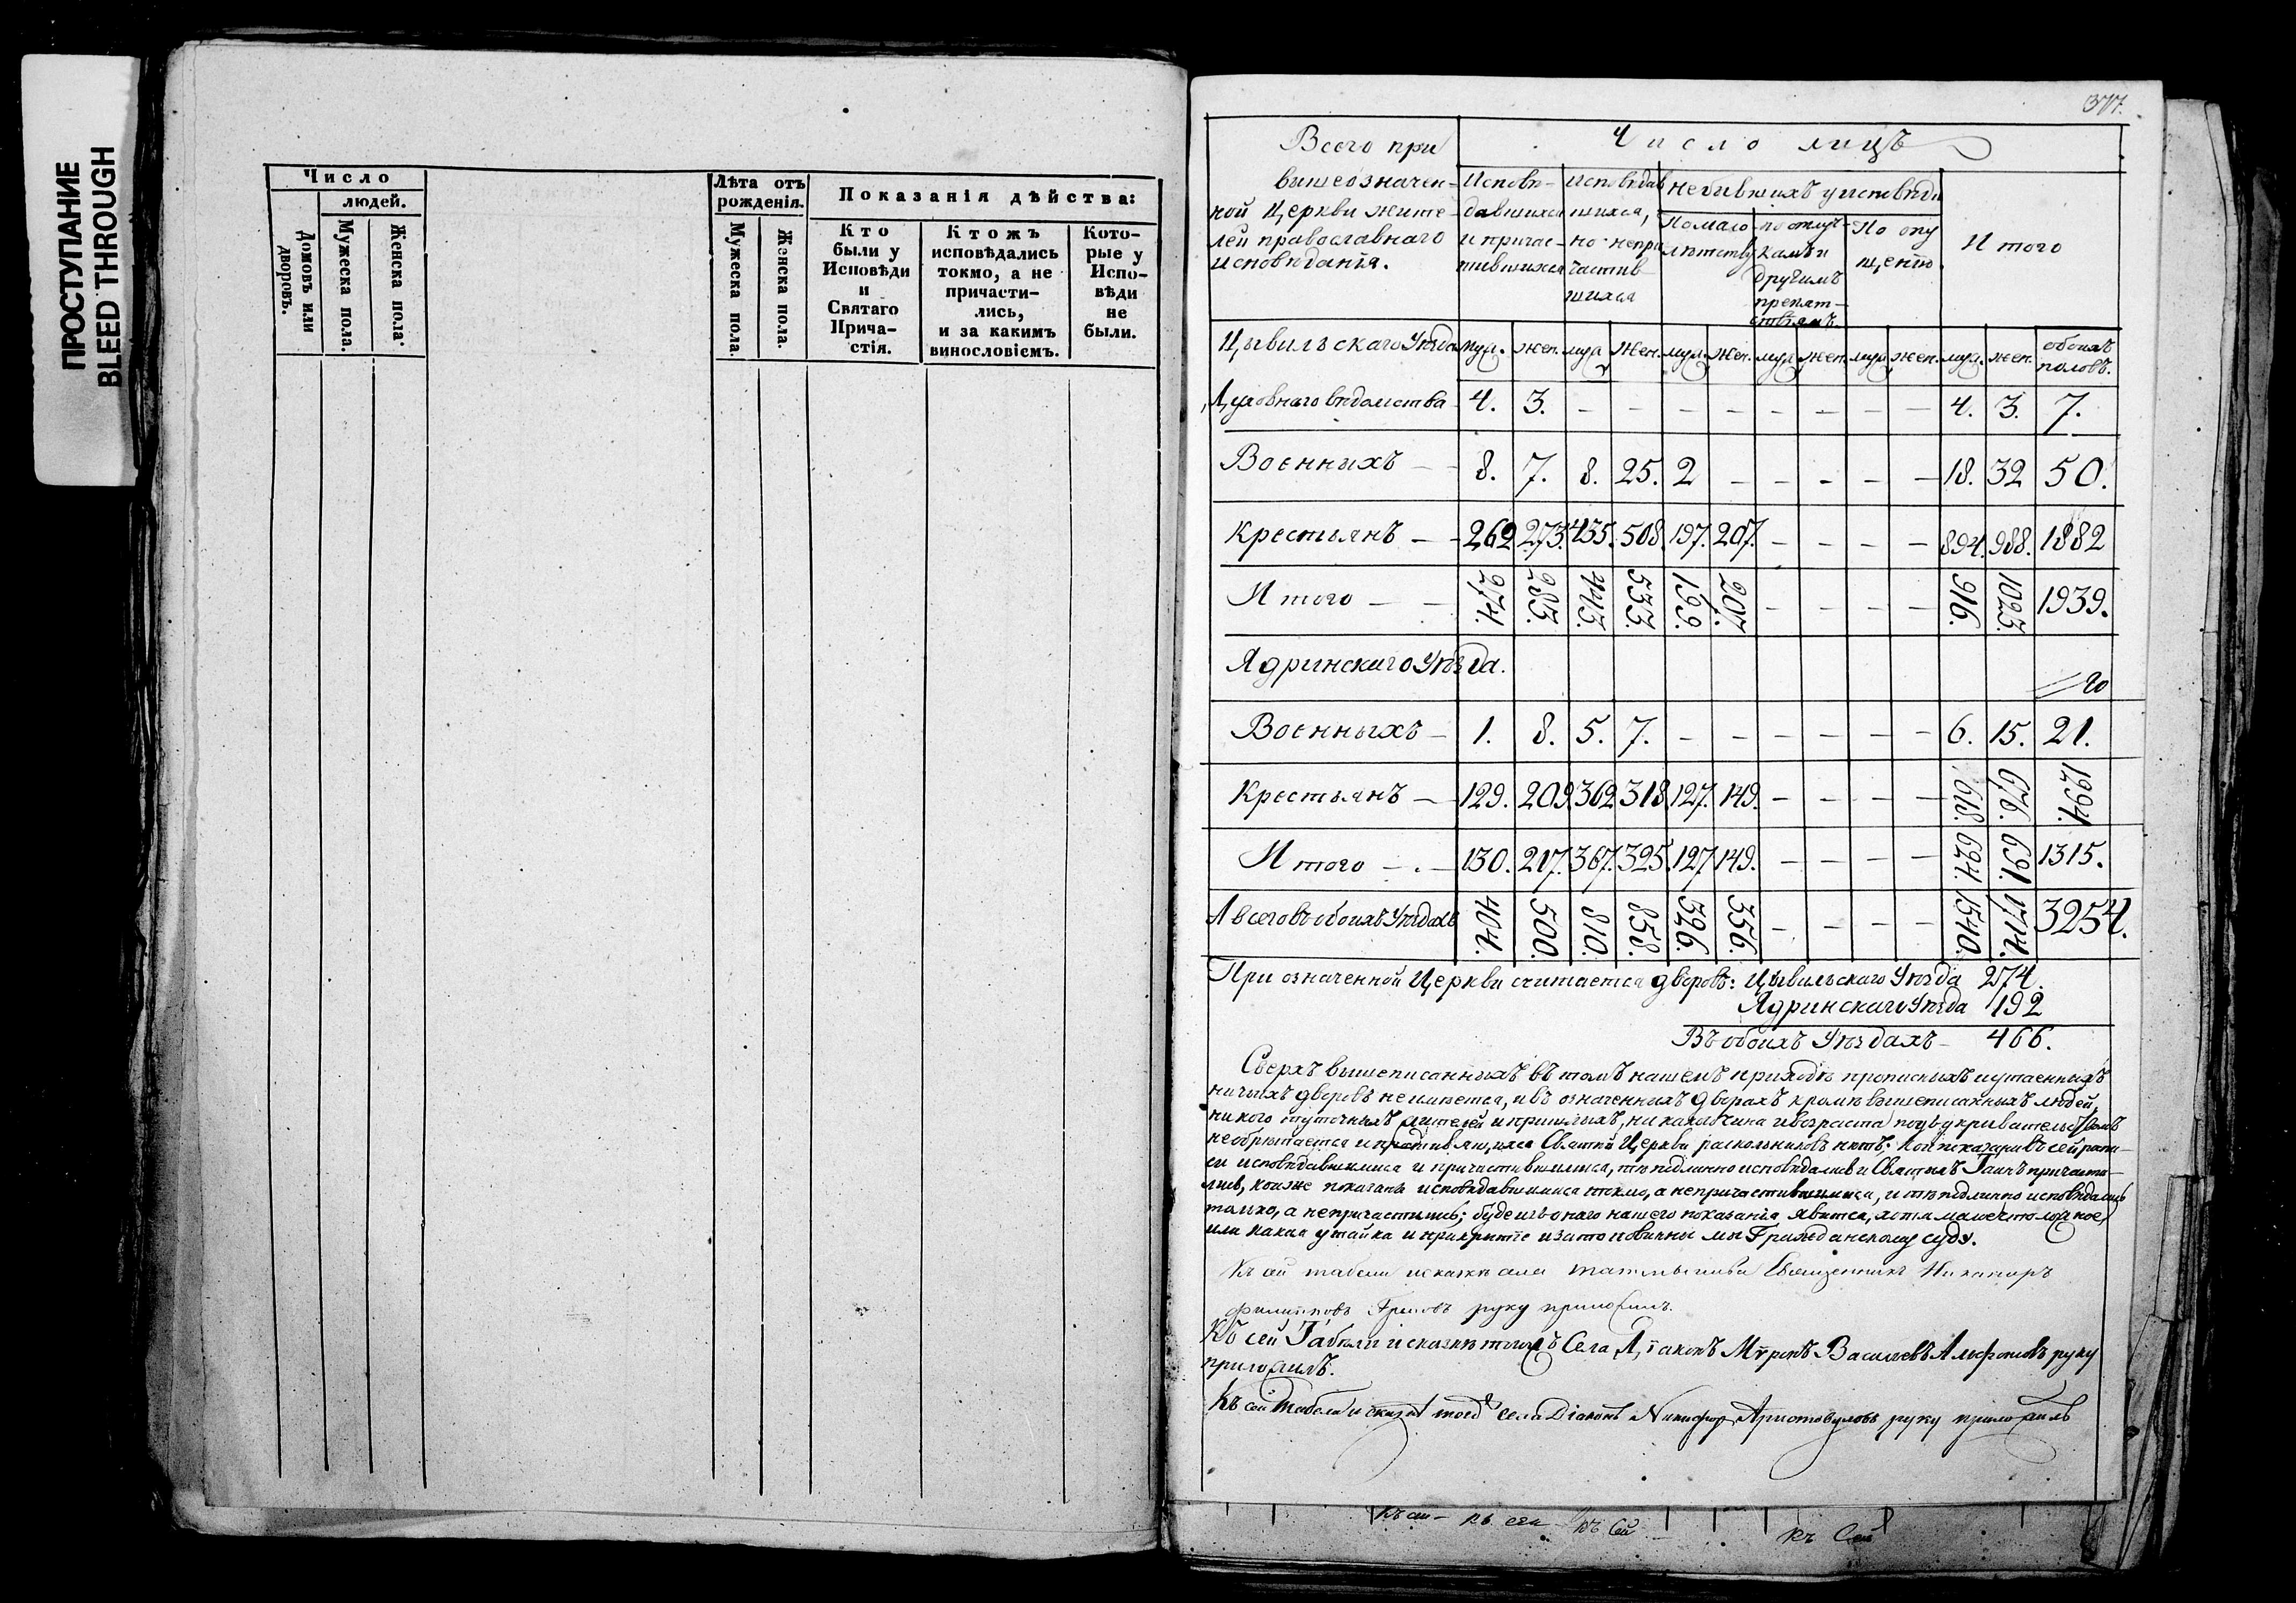 ПРОСТУПАНИЕ
BLEED THROUGH
Число
людей.
Домовъ или дворовъ.
Мужеска пола.
Женска пола.
Лѣта отъ рожденія.
Мужеска пола.
Женска пола.
Показанія дѣйства:
Кто были у Исповѣди и Святаго Прича-стія.
Ктожъ исповѣдались токмо, а не причасти-лись, и за какимъ винословіемъ.
Кото-рые у Испо-вѣди не были.
377.
Всего при вышеозначен-ной Церкви жите-лей православнаго исповѣданія.
Число лицъ
Исповѣ-давшихся и причас-тившихся
исповѣдав шихся, но непри частив шихся
небывшихъ у исповѣди
По мало лѣтству
по отлуч-камъ и другимъ препят-ствіямъ
По опу щенію
Итого
Цывильскаго Уѣзда муж. жен. муж. жен. муж. жен. муж. жен. муж. жен. муж. жен. обоихъ половъ.
Духовнаго вѣдомства 4. 3. – – – – – – – – 4. 3. 7.
Военныхъ – 8. 7. 8. 25. 2 – – – – – 18. 32 50.
Крестьянъ – 262 273. 435. 508. 197. 207. – – – – 894. 988. 1882
Итого – – 274. 283. 443. 533. 199. 207. – – – – 916. 1023. 1939.
Ядринскаго Уѣзда.
Военныхъ – 1. 8. 5. 7. – – – – – – 6. 15. 21.
Крестьянъ – 129. 209. 362. 318. 127. 149. – – – – 618. 676. 1294.
Итого – . – 130. 217. 367. 325. 127. 149. – – – – 624. 691. 1315.
А всего въ обоихъ Уѣздахъ 404. 500. 810. 858. 326. 356. – – – – 1540. 1714. 3254.
При означенной Церкви считается дворовъ: Цывильскаго Уѣзда 274.
Ядринскаго Уѣзда 192
Въ обоихъ Уѣздахъ – 466.
Сверхъ вышеписанныхъ въ томъ нашемъ приходѣ прописныхъ и утаенныхъ
ничьихъ дворовъ не имѣется, и въ означенныхъ дворахъ кромѣ вышеписанныхъ людей,
никого тутошныхъ жителей и пришлыхъ, ни какова чина и возраста подъ укривательствомъ
необрѣтается и противляющихся Святой Церкви раскольниковъ нѣтъ. Кои показаны въ сей роспи-
си исповѣдавшимися и причастившимися, тѣ подлинно исповѣдались и Святыхъ Таинъ причасти-
лись, коиже показаны исповѣдавшимися токмо, а непричастившимися, и тѣ подлинно исповѣдались
только, а непричастились; буде изъ онаго нашего показанія явится, хотя малое что ложное,
или какая утайка и прикрытіе и за то повинны мы Гражданскому суду.
Къ сей табели и сказкѣ села Священникъ Никаноръ
Филипповъ руку приложилъ.
Къ сей Табели и сказкѣ тогожъ Села Діаконъ Миронъ Васильевъ Альфонсовъ руку
приложилъ.
Къ сей Табели и сказкѣ тогожъ села Діаконъ Никифоръ Аристовуловъ руку приложилъ
Къ сей – Къ сей Къ Сей – Къ Сей